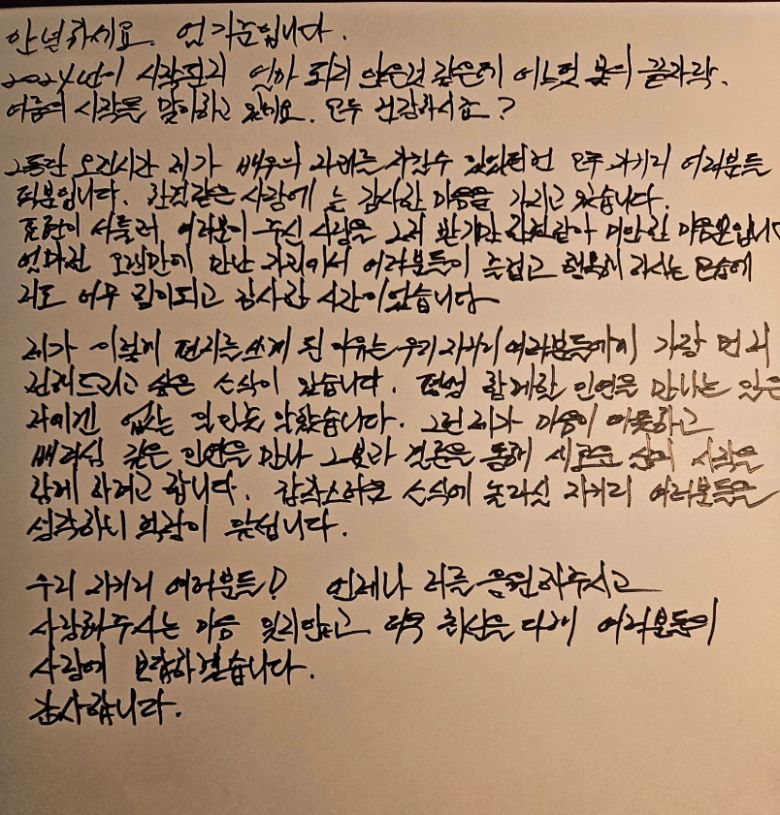 안녕하세요. 엄기준입니다.
2024년이 시작된지 얼마 되지 않은것 같은데 어느덧 봄의 끝자락,
여름의 시작을 맞이하고 있네요. 모두 건강하시죠?
그동안 오랜시간 제가 배우의 자리를 지킬수 있었던건 모두 자기리 여러분들
덕분입니다. 한결같은 사랑에 늘 감사한 마음을 가지고 있습니다.
표현이 서툴러 여러분이 주신 사랑을 그저 받기만 한것같아 미안한 마음뿐입니다
얼마전 오랜만에 만난 자리에서 여러분들이 즐겁고 행복해 하시는 모습에
저도 너무 힘이되고 감사한 시간이었습니다
제가 이렇게 편지를 쓰게 된 이유는 우리 자기리 여러분들에게 가장 먼저
전해드리고 싶은 소식이 있습니다. 평생 함께할 인연을 만나는 일은
저에겐 없는 일인줄 알았습니다. 그런 제가 마음이 따뜻하고
배려심 깊은 인연을 만나 그분과 결혼을 통해 새로운 삶의 시작을
함께 하려고 합니다. 갑작스러운 소식에 놀라실 자기리 여러분들을
생각하니 떨립니다.
우리 자기리 여러분들! 언제나 저를 응원해주시고
사랑해주시는 마음 잊지않고 더욱 최선을 다해 여러분들의
사랑에 보답하겠습니다.
감사합니다.